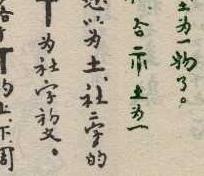 土为一物了。
合示土为一
以为土、社二字的
丅为社字初文。
的土、下周